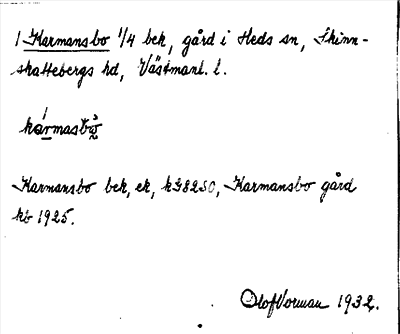 1 Karmansbo 1/4 bek, gård i Heds sn, Skinn-
skattebergs hd, Västmanl. l.
Karmansbo bek, ek, k G8250, Karmansbo gård
hb 1925.
Olof Vorman 1932.